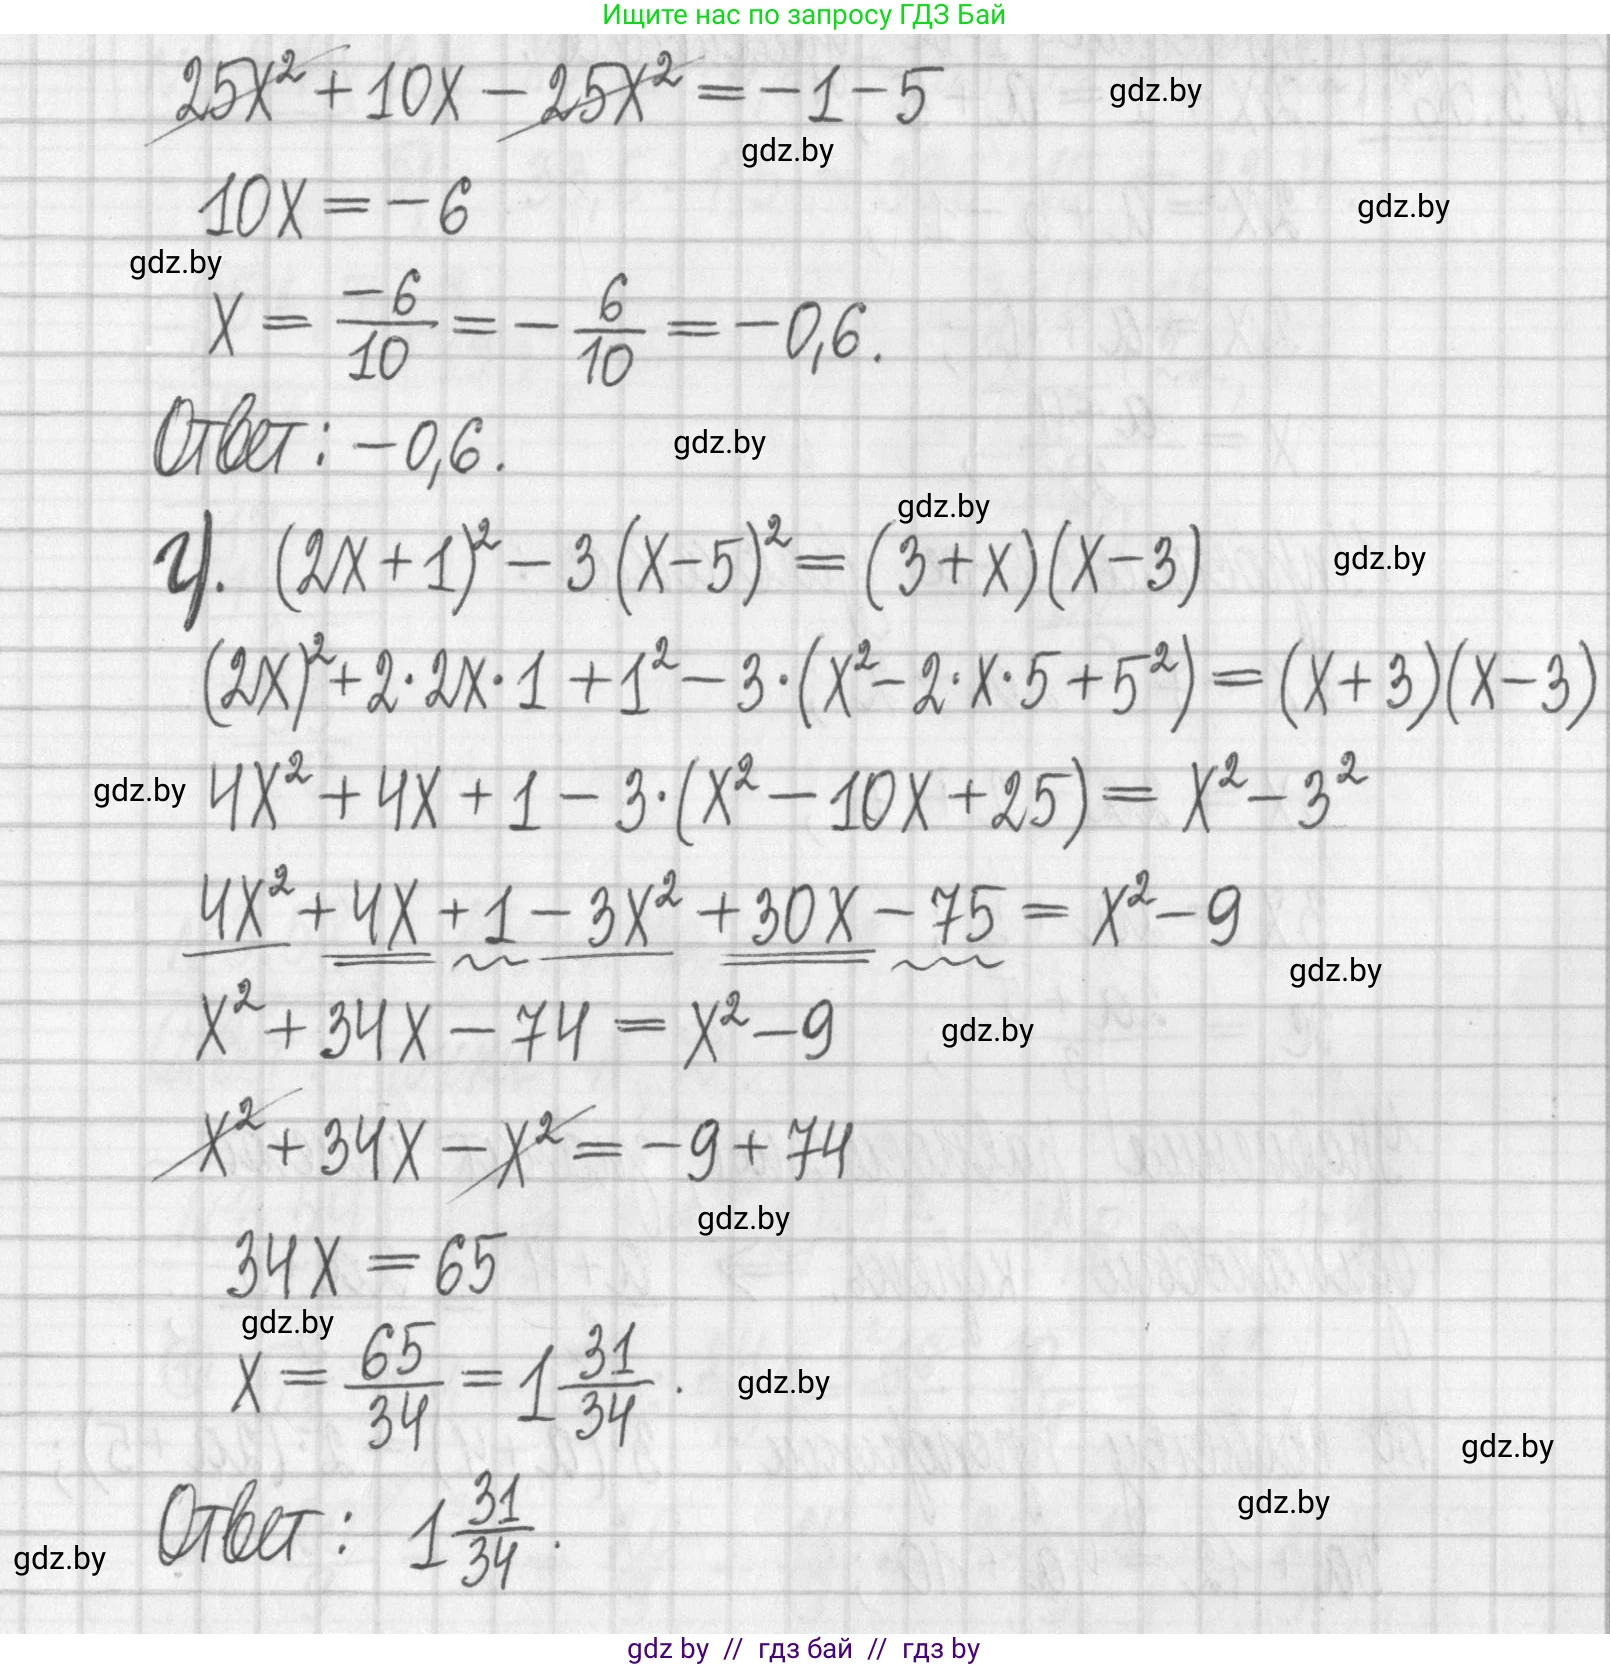 Ищите нас по запросу ГДЗ Бай
25x² + 10x − 25x² = −1 − 5
gdz.by
gdz.by
10x = −6
gdz.by
gdz.by
x = −6/10 = −6/10 = −0,6.
Ответ: −0,6.
gdz.by
gdz.by
ч. (2x + 1)² − 3(x − 5)² = (3 + x)(x − 3)
gdz.by
(2x)² + 2·2x·1 + 1² − 3·(x² − 2·x·5 + 5²) = (x + 3)(x − 3)
gdz.by
4x² + 4x + 1 − 3·(x² − 10x + 25) = x² − 3²
4x² + 4x + 1 − 3x² + 30x − 75 = x² − 9
gdz.by
x² + 34x − 74 = x² − 9
gdz.by
x² + 34x − x² = −9 + 74
gdz.by
34x = 65
gdz.by
x = 65/34 = 1 31/34.
gdz.by
gdz.by
gdz.by
Ответ: 1 31/34.
gdz.by
gdz by // гдз бай // гдз by